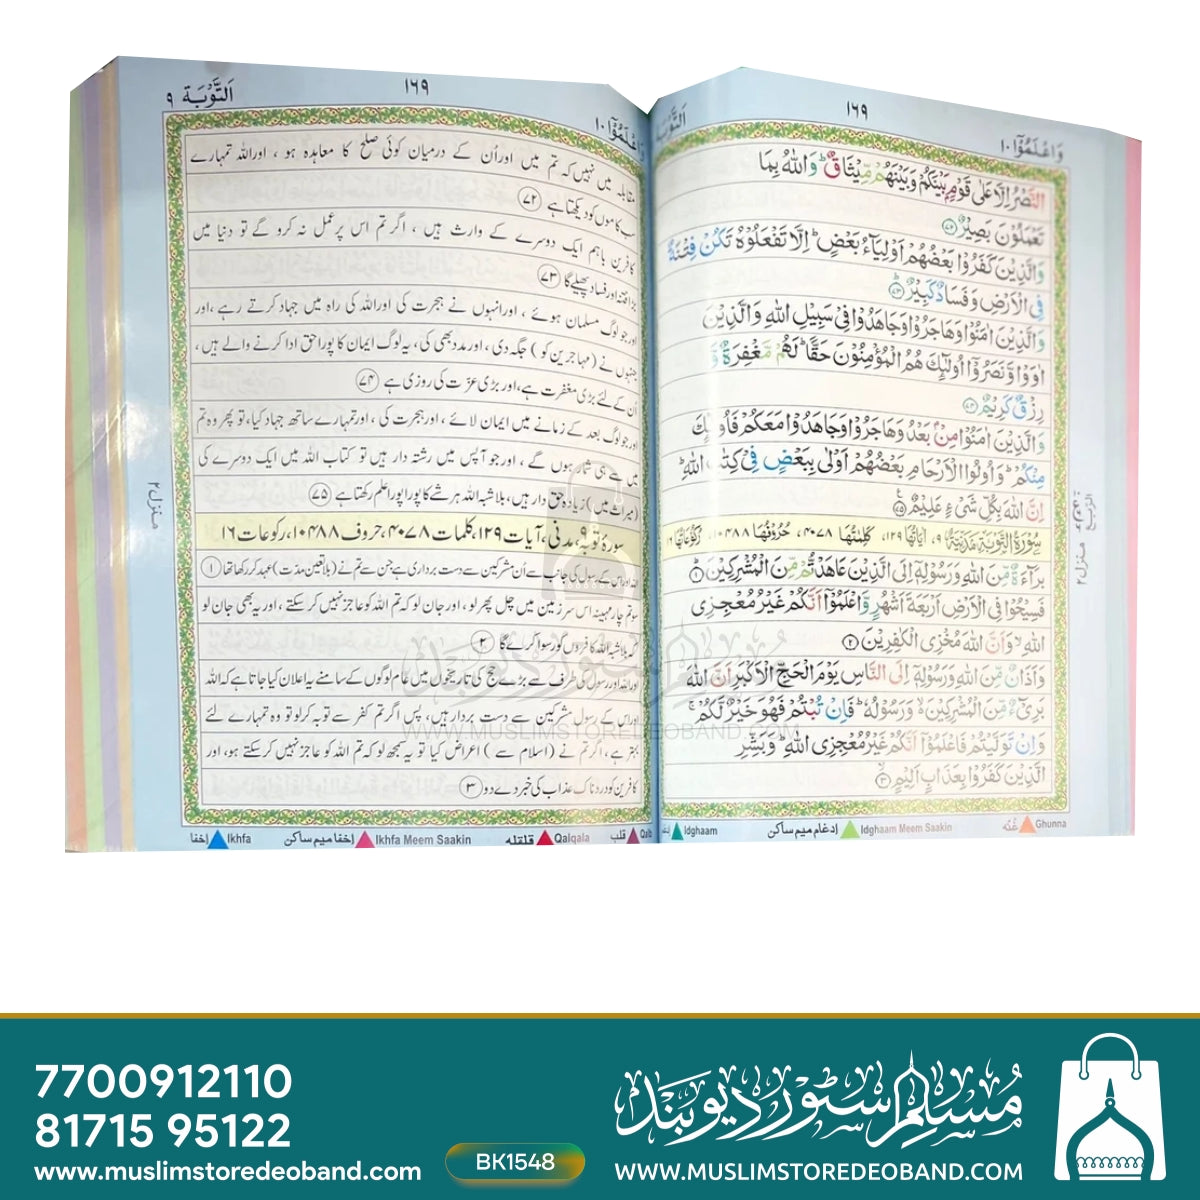 وَاعْلَمُوْٓا ١٠
١٦٩
التَّوْبَة
النَّصْرُ اِلَّا عَلٰى قَوْمٍۭ بَيْنَكُمْ وَبَيْنَهُمْ مِّيْثَاقٌ ؕ وَاللّٰهُ بِمَا
تَعْمَلُوْنَ بَصِيْرٌ ﴿٧٢﴾
وَالَّذِيْنَ كَفَرُوْا بَعْضُهُمْ اَوْلِيَآءُ بَعْضٍ ؕ اِلَّا تَفْعَلُوْهُ تَكُنْ فِتْنَةٌ
فِى الْاَرْضِ وَفَسَادٌ كَبِيْرٌ ﴿٧٣﴾
وَالَّذِيْنَ اٰمَنُوْا وَهَاجَرُوْا وَجَاهَدُوْا فِىْ سَبِيْلِ اللّٰهِ وَالَّذِيْنَ
اٰوَوْا وَّنَصَرُوْٓا اُولٰٓئِكَ هُمُ الْمُؤْمِنُوْنَ حَقًّا ؕ لَهُمْ مَّغْفِرَةٌ وَّ
رِزْقٌ كَرِيْمٌ ﴿٧٤﴾
وَالَّذِيْنَ اٰمَنُوْا مِنْۢ بَعْدُ وَهَاجَرُوْا وَجَاهَدُوْا مَعَكُمْ فَاُولٰٓئِكَ
مِنْكُمْ ؕ وَاُولُوا الْاَرْحَامِ بَعْضُهُمْ اَوْلٰى بِبَعْضٍ فِىْ كِتٰبِ اللّٰهِ ؕ
اِنَّ اللّٰهَ بِكُلِّ شَىْءٍ عَلِيْمٌ ﴿٧٥﴾
سُوْرَةُ التَّوْبَةِ مَدَنِيَّةٌ ٩، اٰيَاتُهَا ١٢٩، كَلِمٰتُهَا ٤٠٧٨، حُرُوْفُهَا ١٠٤٨٨، رُكُوْعَاتُهَا ١٦
بَرَآءَةٌ مِّنَ اللّٰهِ وَرَسُوْلِهٖٓ اِلَى الَّذِيْنَ عَاهَدْتُّمْ مِّنَ الْمُشْرِكِيْنَ ﴿١﴾
فَسِيْحُوْا فِى الْاَرْضِ اَرْبَعَةَ اَشْهُرٍ وَّاعْلَمُوْٓا اَنَّكُمْ غَيْرُ مُعْجِزِى
اللّٰهِ ۙ وَاَنَّ اللّٰهَ مُخْزِى الْكٰفِرِيْنَ ﴿٢﴾
وَاَذَانٌ مِّنَ اللّٰهِ وَرَسُوْلِهٖٓ اِلَى النَّاسِ يَوْمَ الْحَجِّ الْاَكْبَرِ اَنَّ اللّٰهَ
بَرِىْٓءٌ مِّنَ الْمُشْرِكِيْنَ ۙ وَرَسُوْلُهٗ ؕ فَاِنْ تُبْتُمْ فَهُوَ خَيْرٌ لَّكُمْ ۚ
وَاِنْ تَوَلَّيْتُمْ فَاعْلَمُوْٓا اَنَّكُمْ غَيْرُ مُعْجِزِى اللّٰهِ ؕ وَبَشِّرِ
الَّذِيْنَ كَفَرُوْا بِعَذَابٍ اَلِيْمٍ ﴿٣﴾
الربع
منزل ٢
غُنّه Ghunna
إدغام ميم ساكن Idghaam Meem Saakin
Idghaam
وَاعْلَمُوْٓا ١٠
١٦٩
اَلتَّوْبَة ٩
مقابلہ میں نہیں کہ تم میں اور اُن کے درمیان کوئی صلح کا معاہدہ ہو ، اور اللہ تمہارے
سب کاموں کو دیکھتا ہے ﴿۷۲﴾
کافرین باہم ایک دوسرے کے وارث ہیں ، اگر تم اس پر عمل نہ کرو گے تو دنیا میں
بڑا فتنہ اور فساد پھیلے گا ﴿۷۳﴾
اور جو لوگ مسلمان ہوئے ، اور انہوں نے ہجرت کی اور اللہ کی راہ میں جہاد کرتے رہے ، اور
جنہوں نے ( مہاجرین کو ) جگہ دی ، اور مدد بھی کی ، یہ لوگ ایمان کا پورا حق ادا کرنے والے ہیں ،
اُن کے لئے بڑی مغفرت ہے ، اور بڑی عزت کی روزی ہے ﴿۷۴﴾
اور جو لوگ بعد کے زمانے میں ایمان لائے ، اور ہجرت کی ، اور تمہارے ساتھ جہاد کیا ، تو پھر وہ تم
میں سے ہی شمار ہوں گے ، اور جو آپس میں رشتہ دار ہیں تو کتاب اللہ میں ایک دوسرے کی
( میراث میں ) زیادہ حق دار ہیں ، بلاشبہ اللہ ہر شے کا پورا پورا علم رکھتا ہے ﴿۷۵﴾
سورۂ توبہ ٩ مدنی ، آیات ۱۲۹ ، کلمات ۴۰۷۸ ، حروف ۱۰۴۸۸ ، رکوعات ۱۶
اللہ اور اس کے رسول کی جانب سے اُن مشرکین سے دست برداری ہے جن سے تم نے ( بلا تعین مدت ) عہد کر رکھا تھا ﴿۱﴾
سو تم چار مہینہ اس سرزمین میں چل پھر لو ، اور جان لو کہ تم اللہ کو عاجز نہیں کر سکتے ، اور یہ بھی جان لو
کہ بلاشبہ اللہ کافروں کو رسوا کرے گا ﴿۲﴾
اور اللہ اور رسول کی طرف سے بڑے حج کی تاریخوں میں عام لوگوں کے سامنے یہ اعلان کیا جاتا ہے کہ اللہ
اور اس کے رسول مشرکین سے دست بردار ہیں ، پس اگر تم کفر سے توبہ کر لو تو وہ تمہارے لئے
بہتر ہے ، اگر تم نے ( اسلام سے ) اعراض کیا تو یہ سمجھ لو کہ تم اللہ کو عاجز نہیں کر سکتے ہو ، اور
کافرین کو دردناک عذاب کی خبر دے دو ﴿۳﴾
منزل ۲
قلب Qalb
قلقله Qalqala
إخفا ميم ساكن Ikhfa Meem Saakin
إخفا Ikhfa
مسلم سٹور دیوبند
WWW.MUSLIMSTOREDEOBAND.COM
7700912110
81715 95122
www.muslimstoredeoband.com
BK1548
مسلم سٹور دیوبند
WWW.MUSLIMSTOREDEOBAND.COM